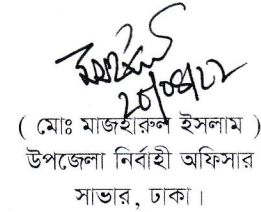 ২০/০৪/২২
( মোঃ মাজহারুল ইসলাম )
উপজেলা নির্বাহী অফিসার
সাভার, ঢাকা।